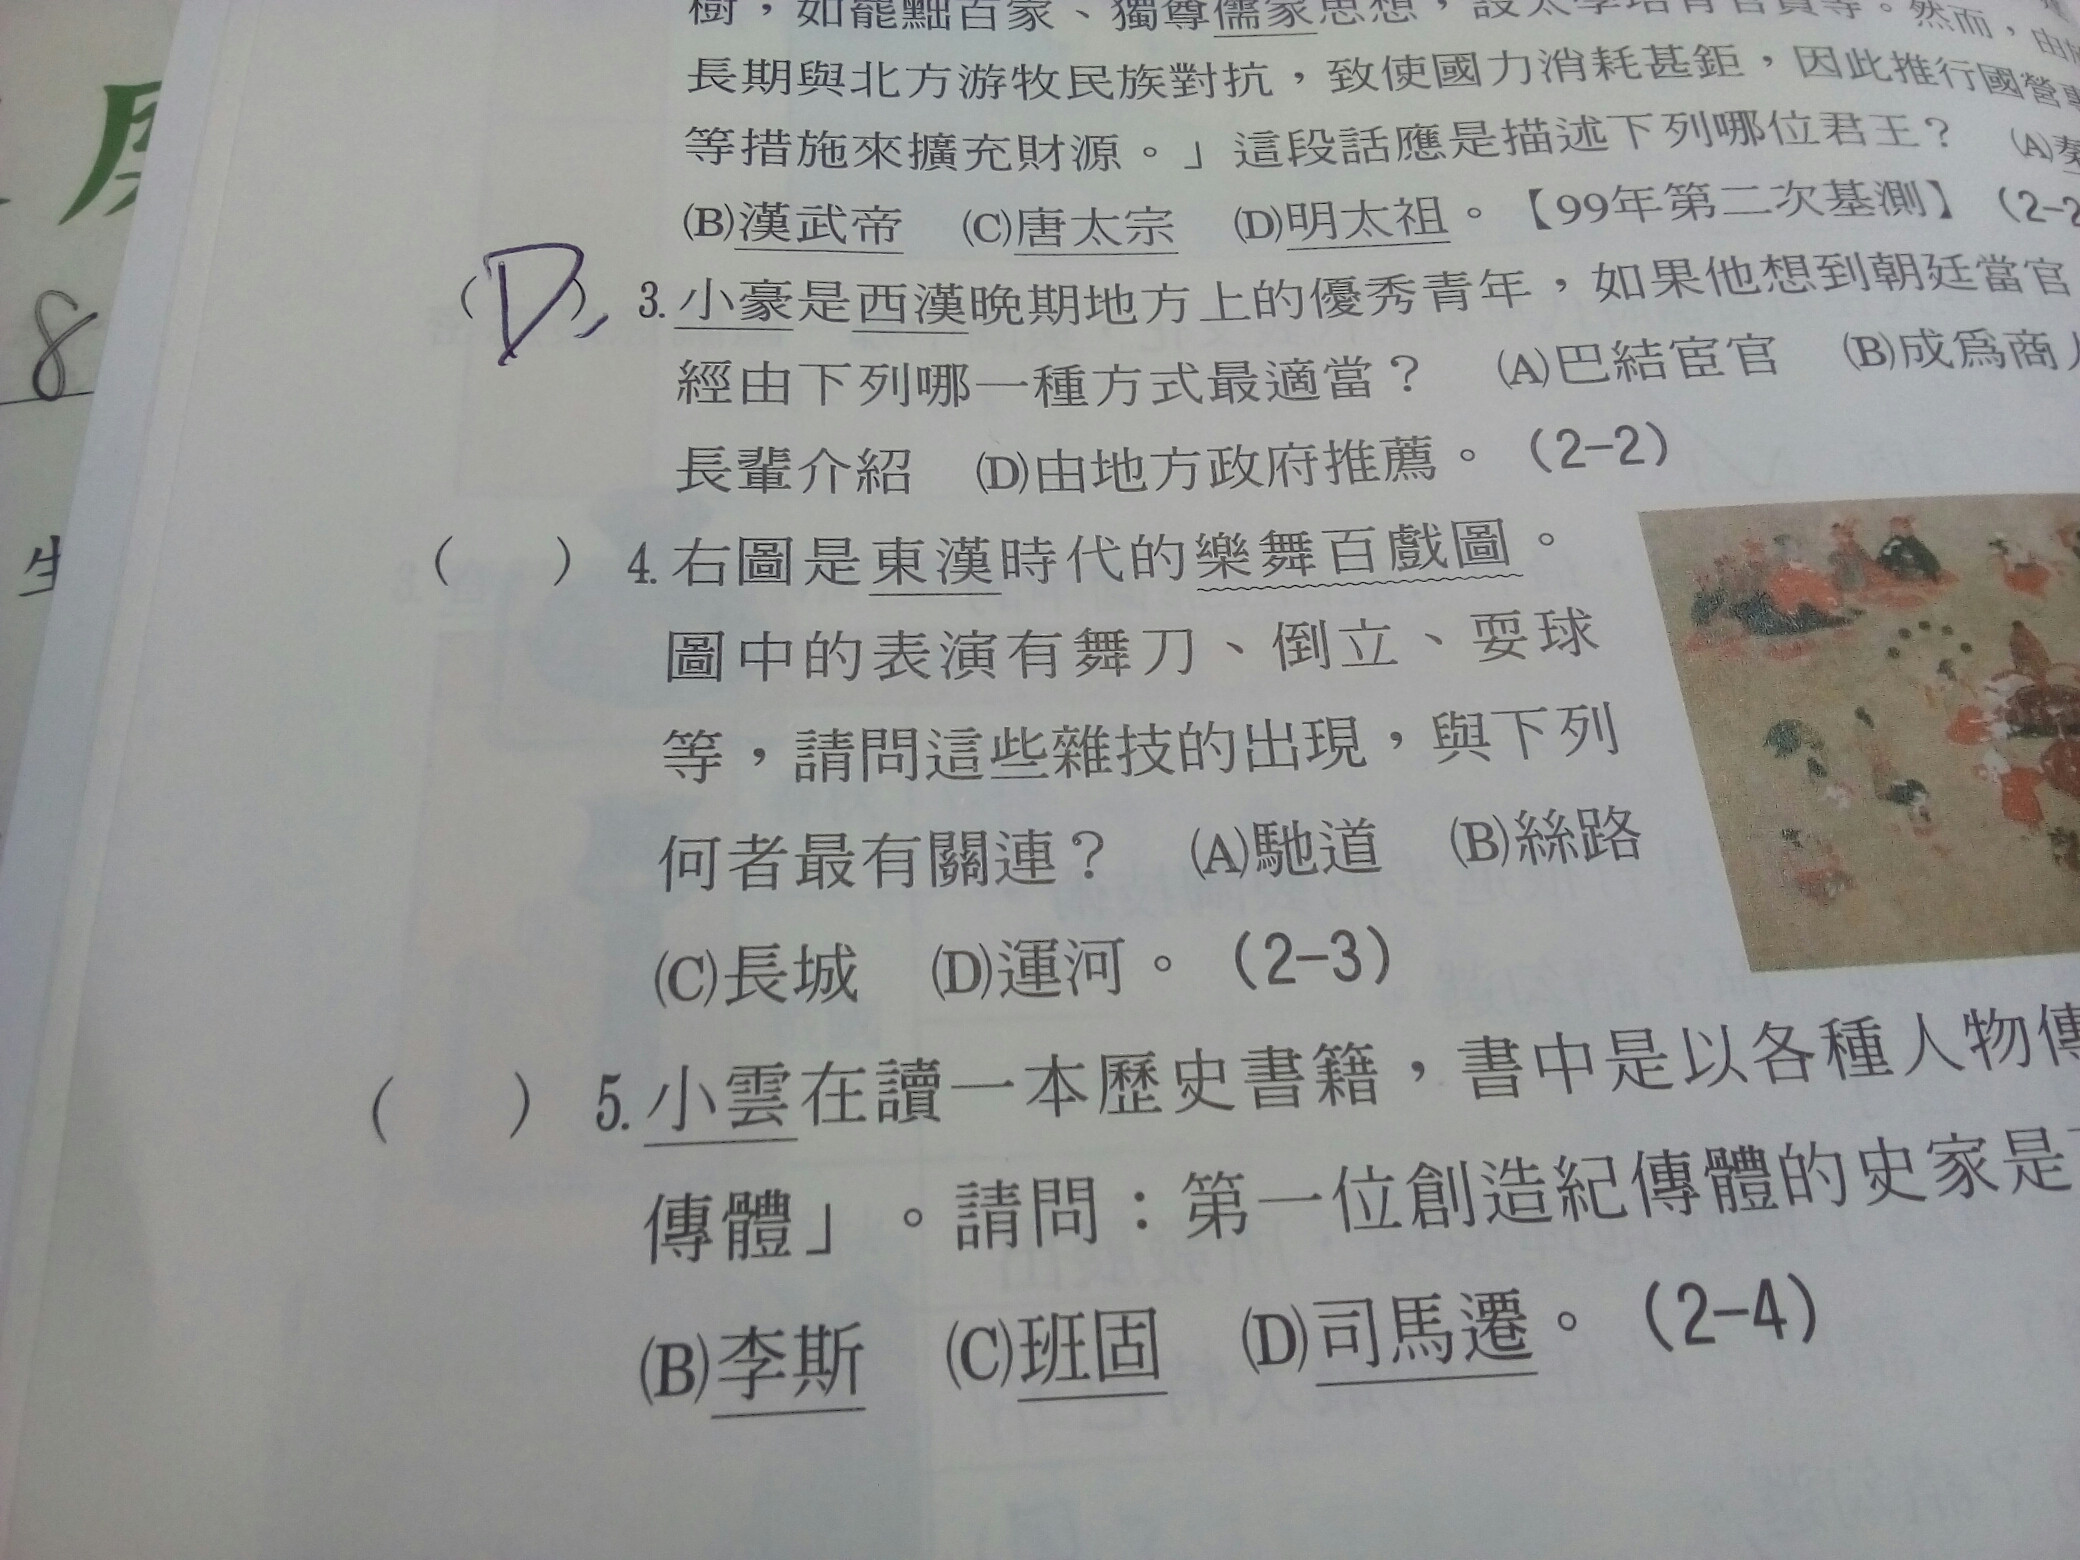 樹，如罷黜百家、獨尊儒家思想，設太學培育官員等。然而，由於
長期與北方游牧民族對抗，致使國力消耗甚鉅，因此推行國營專
等措施來擴充財源。」這段話應是描述下列哪位君王？ (A)秦
(B)漢武帝 (C)唐太宗 (D)明太祖。【99年第二次基測】（2-2
(D) 3.小豪是西漢晚期地方上的優秀青年，如果他想到朝廷當官
經由下列哪一種方式最適當？ (A)巴結宦官 (B)成為商人
長輩介紹 (D)由地方政府推薦。（2-2）
（ ）4.右圖是東漢時代的樂舞百戲圖。
圖中的表演有舞刀、倒立、耍球
等，請問這些雜技的出現，與下列
何者最有關連？ (A)馳道 (B)絲路
(C)長城 (D)運河。（2-3）
（ ）5.小雲在讀一本歷史書籍，書中是以各種人物傳
傳體」。請問：第一位創造紀傳體的史家是下
(B)李斯 (C)班固 (D)司馬遷。（2-4）
8
生